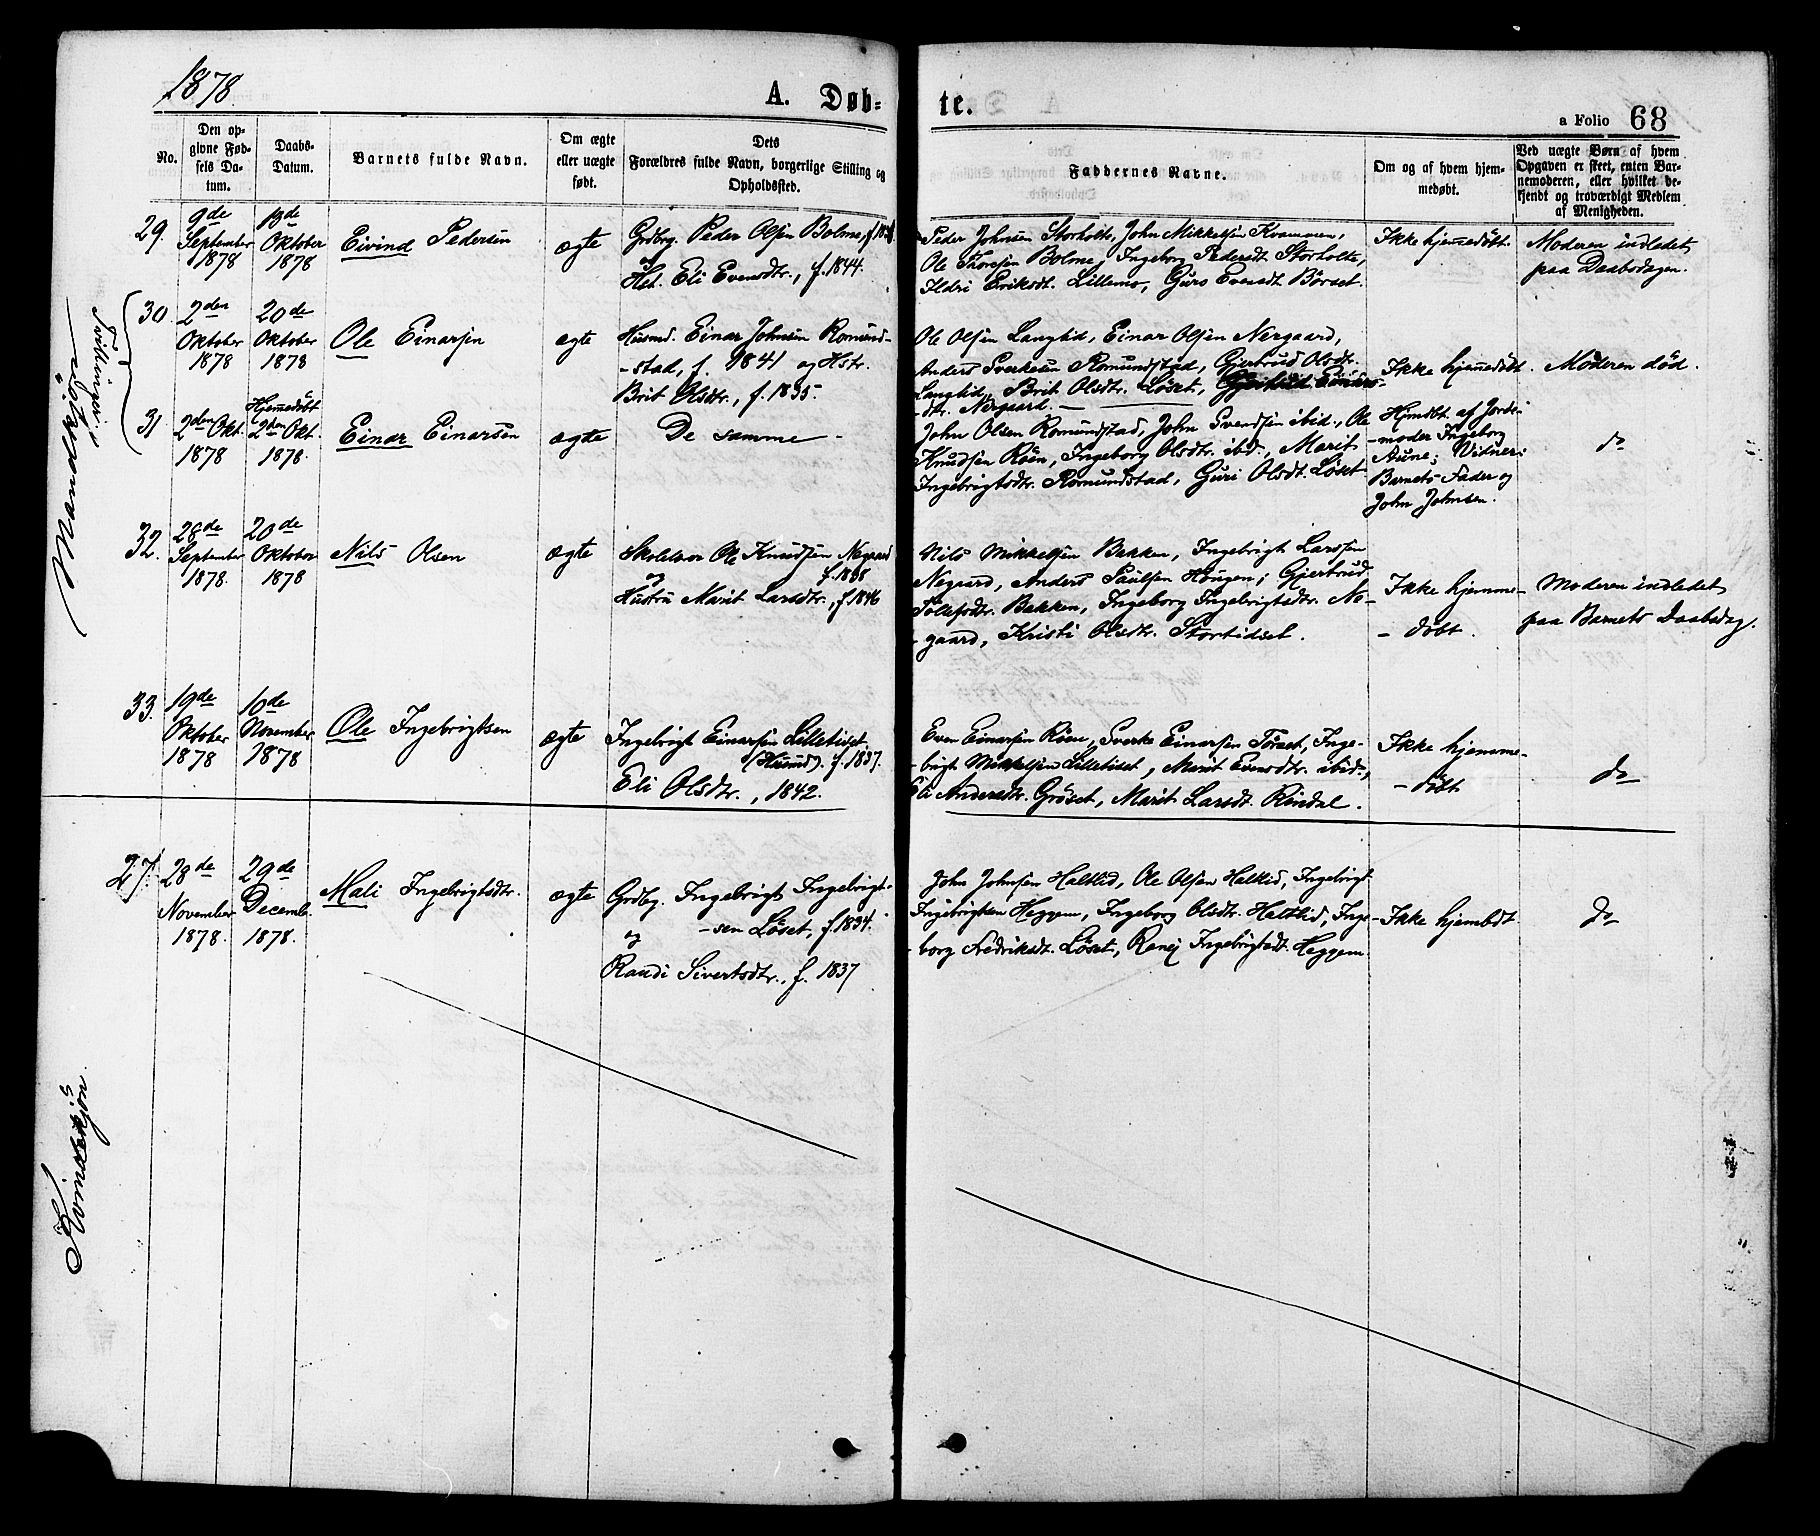 1878.
A. Døb-
te.
a Folio 68
No.
Den op-
givne Fød-
sels Da-
tum.
Daabs-
Datum.
Barnets fulde Navn.
Om ægte
eller uægte
født.
Dets
Forældres fulde Navn, borgerlige Stilling og
Opholdssted.
Faddernes Navne.
Om og af hvem hjem-
medøbt.
Ved uægte Børn af hvem
Opgaven er skeet, enten Bar-
nemoderen, eller hvilket be-
kjendt og troværdigt Medlem
af Menigheden.
Mandkjön
Tvillinger
29.
9de
September
1878
Oktober
1878
Eivind Pedersen
ægte
Grdbrg. Peder Olsen Bolme,
og
Hst. Eli Evensdtr., f. 1844.
Peder Johnsen Storholt, John Mikkelsen Kvammen,
Ole Thoresen Bolme, Ingeborg Pedersdt. Storholt,
Ildri Eriksdt. Lillemo, Guro Evensdt. Börset.
Ikke hjemmedöbt.
Moderen indledet
paa Daabsdagen.
30.
2den
Oktober
1878
20de
Oktober
1878
Ole Einarsen
ægte
Husmd. Einar Johnsen Romund-
-stad, f. 1841 og Hstr.
Brit Olsdtr., f. 1835.
Ole Olsen Langlid, Einar Olsen Nergaard,
Anders Sverkesen Romundstad, Gjertrud Olsdtr.
Langlid, Brit Olsdtr. Löset,
-dtr. Nergaard.
Ikke hjemmedöbt.
Moderen död.
31
2den Okt.
1878
Hjemmedöbt
2den Okt.
1878.
Einar Einarsen
ægte
De samme
John Olsen Romundstad, John Svendsen ibid., Ole
Knudsen Röen, Ingeborg Olsdtr. ibid., Marit
Ingebrigtsdtr. Romundstad, Guri Olsdt. Löset
Hjmdbt. af Jorde-
-moder Ingeborg
Aune; Vitner:
Barnets Fader og
John Johnsen.
do
32.
28de
September
1878.
20de
Oktober
1878
Nils Olsen
ægte
Skolelærer Ole Knudsen Negaard
f. 1838
og
Hustru Marit Larsdtr., f. 1846
Nils Mikkelsen Bakken, Ingebrigt Larssen
Negaard, Anders Paulsen Hougen, Gjertrud
Tolefsdtr. Bakken, Ingeborg Ingebrigtsdtr. Ne-
-gaard, Kristi Olsdtr. Stortidset.
Ikke hjemme-
-döbt.
Moderen indledet
paa Barnets Daabsdag.
33.
19de
Oktober
1878
10de
November
1878
Ole Ingebrigtsen
ægte
Ingebrigt Einarsen Lilletiset
(Husmd). f. 1837.
Eli Olsdtr., 1842.
Even Einarsen Röen, Sverke Einarsen Törset, Inge-
-brigt Mikkelsen Lilletiset, Marit Evensdtr. ibid.,
Eli Andersdtr. Gröset, Marit Larsdt. Rindal.
Ikke hjemme-
-döbt
do
Kvindekjön.
27.
28de
November
1878.
29de
Decemb.
1878.
Mali Ingebrigtsdtr.
ægte
Grdbg. Ingebrigt Ingebrigt-
-sen Löset, f. 1834.
og
Randi Sivertsdtr., f. 1837
John Johnsen Haltlid, Ole Olsen Haltlid, Ingebrigt
Ingebrigtsen Heggem, Ingeborg Olsdtr. Haltlid, Inge-
-borg Fredriksdt. Löset, Ranej Ingebrigtsdt. Heggem
Ikke hjembdt
do